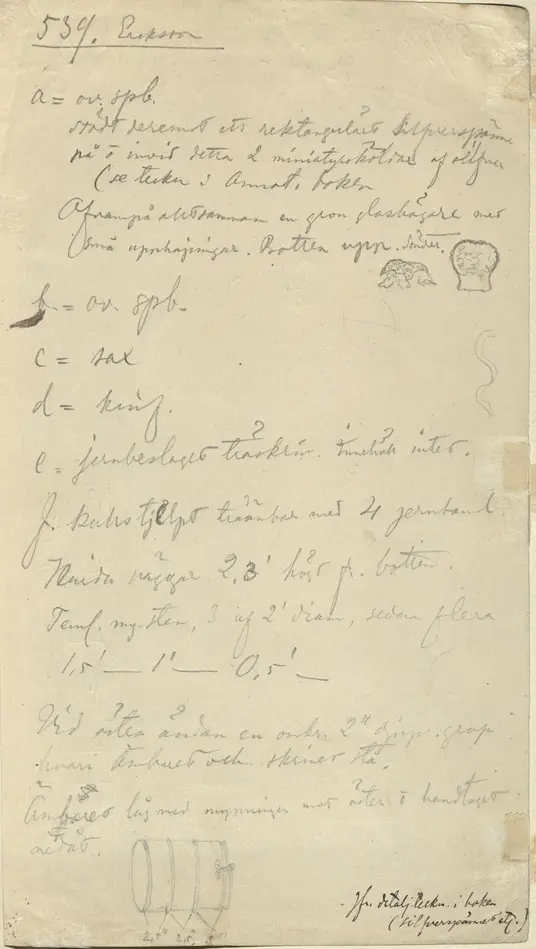 539. Eriksson
a = ov. spb.
stödt deremot ett rektangulärt silfverspänne
på o invid detta 2 miniatyrsköldar af silfver
(se teckn i Annot. boken
Ofvanpå alltsamman en grön glasbägare med
små upphöjningar. Botten upp. Sönder.
b. = ov. spb.
c = sax
d = knif.
e = jernbeslaget träskrin. Innehöll intet.
f. kullstjelpt träämbar med 4 jernband.
väggar 2,3' högt fr. botten.
Teml. my. sten, 3 af 2' diam, sedan flera
1,5' — 1' — 0,5' —
Vid östra ändan en omkr. 2" djup grop
hvari ämbaret och skrinet stå.
Ämbaret låg med mynningen mot öster o handtaget
nedåt.
2,5" 2,5"
Jfr. detaljteckn. i boken
(silfverspännet etc.)